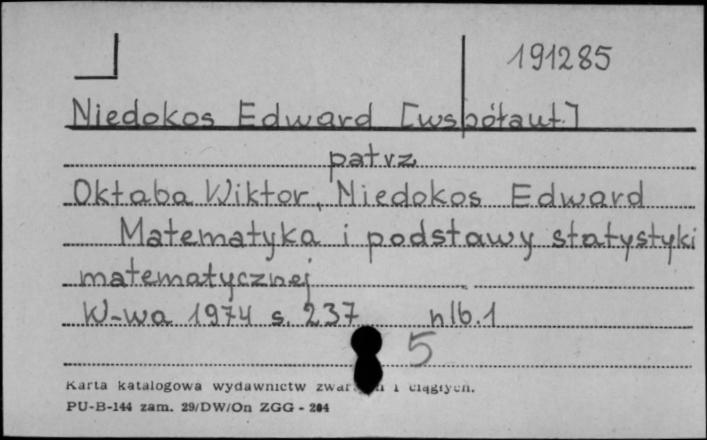 191285
Niedokos Edward [współaut.]
patrz
Oktaba Wiktor, Niedokos Edward
Matematyka i podstawy statystyki
matematycznej
W-wa 1974 s. 237 nlb. 1
5
Karta katalogowa wydawnictw i ciągłych.
PU-B-144 zam. 29/DW/On ZGG - 204